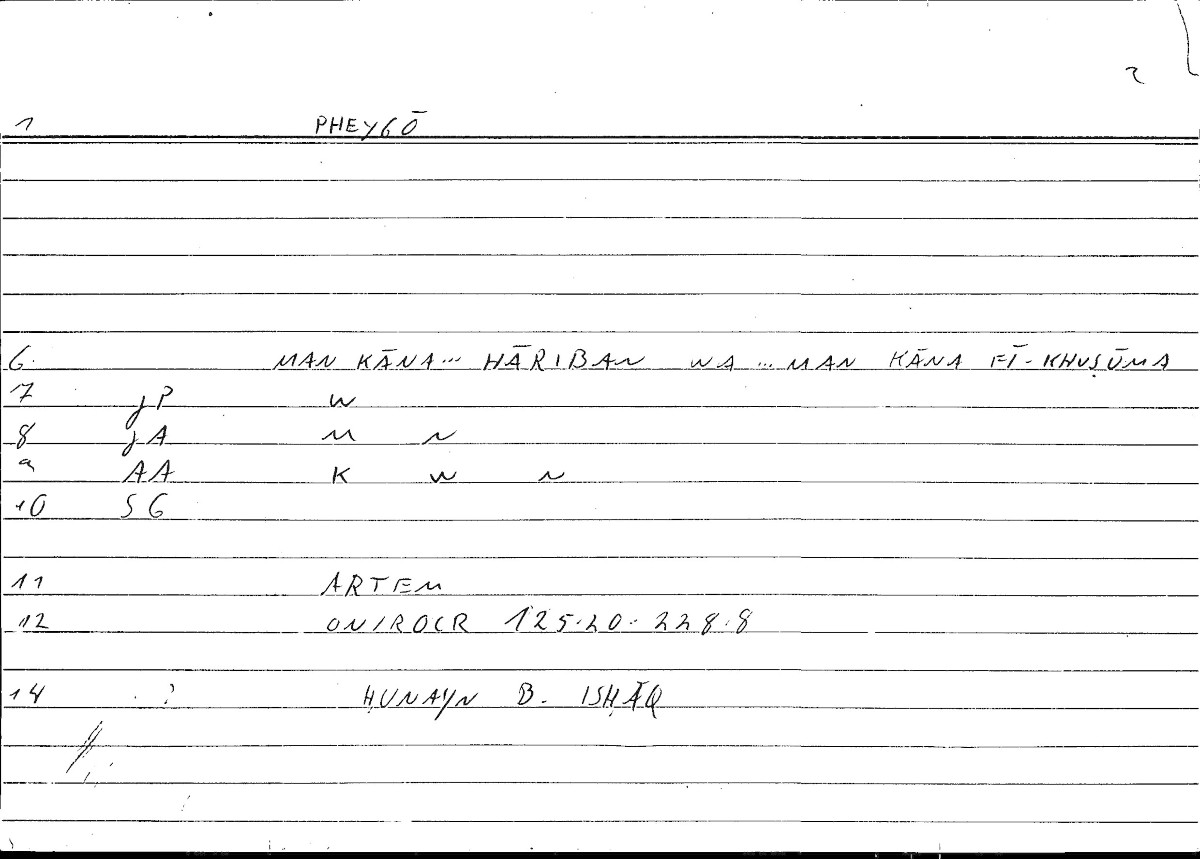 2
1 PHEYGŌ
6. MAN KĀNA... HĀRIBAN WA ... MAN KĀNA FĪ-KHUṢŪMA
7 JP W
8 JA M N
9 AA K W N
10 SG
11 ARTEM
12 ONIROCR 125.20.. 228.8
14 ? ḤUNAYN B. ISḤĀQ